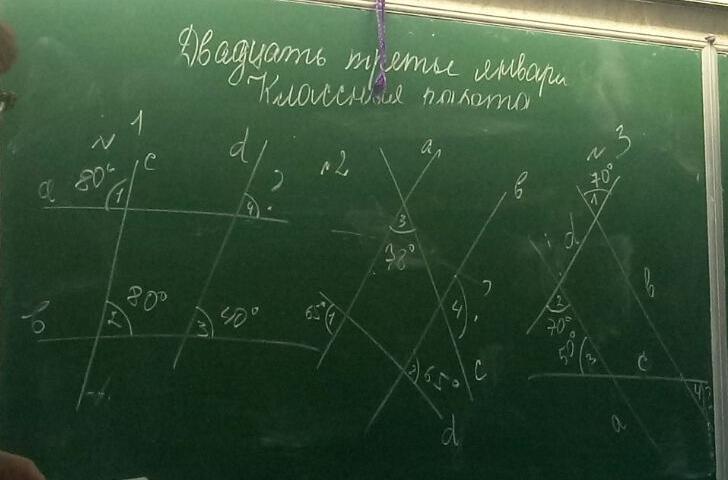 Двадцать третье января
Классная работа
№ 1
a 80° 1 c d 4 ?
b 2 80° 3 40°
№2
a b c d
3 78°
65° 1 2 65° 4 ?
№ 3
70° 1
d b
2 70°
50° 3 c 4 ?
a